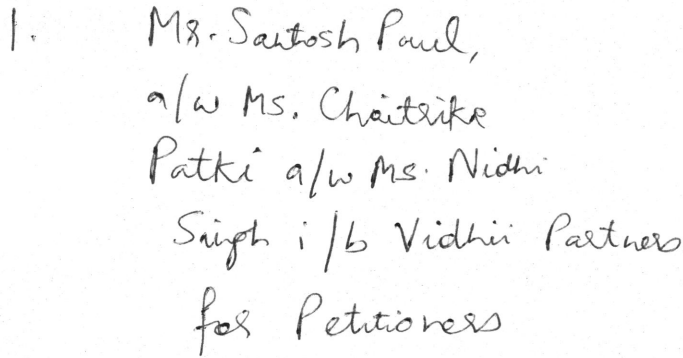 1. Mr. Santosh Paul,
a/w Ms. Chaitrika
Patki a/w Ms. Nidhi
Singh i/b Vidhii Partners
for Petitioners